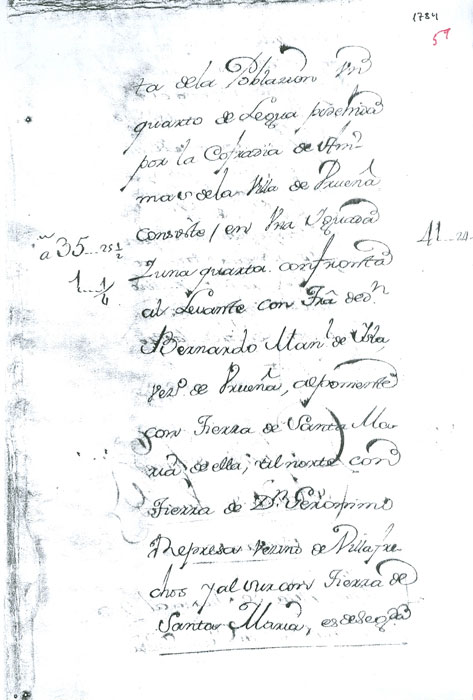 1784
59
ta de la Poblazion Vn
quarto de Legua posehida
por la Cofradia de Ani-
mas de la Villa de Vrueña
Consiste en Vna Yguada
Y una quarta. confronta
al Levante con Trâ de Dn
Bernardo Manl de Isla,
vezo de Vrueña, al poniente
con Tierra de Santa Ma-
ria de ella, al norte con
Tierra de Dn Gerónimo
Represa Vezino de Villafre-
chos y al sur con Tierra de
Santa Maria, es de segda
a 35...25 1/2
1...1/4
41...24